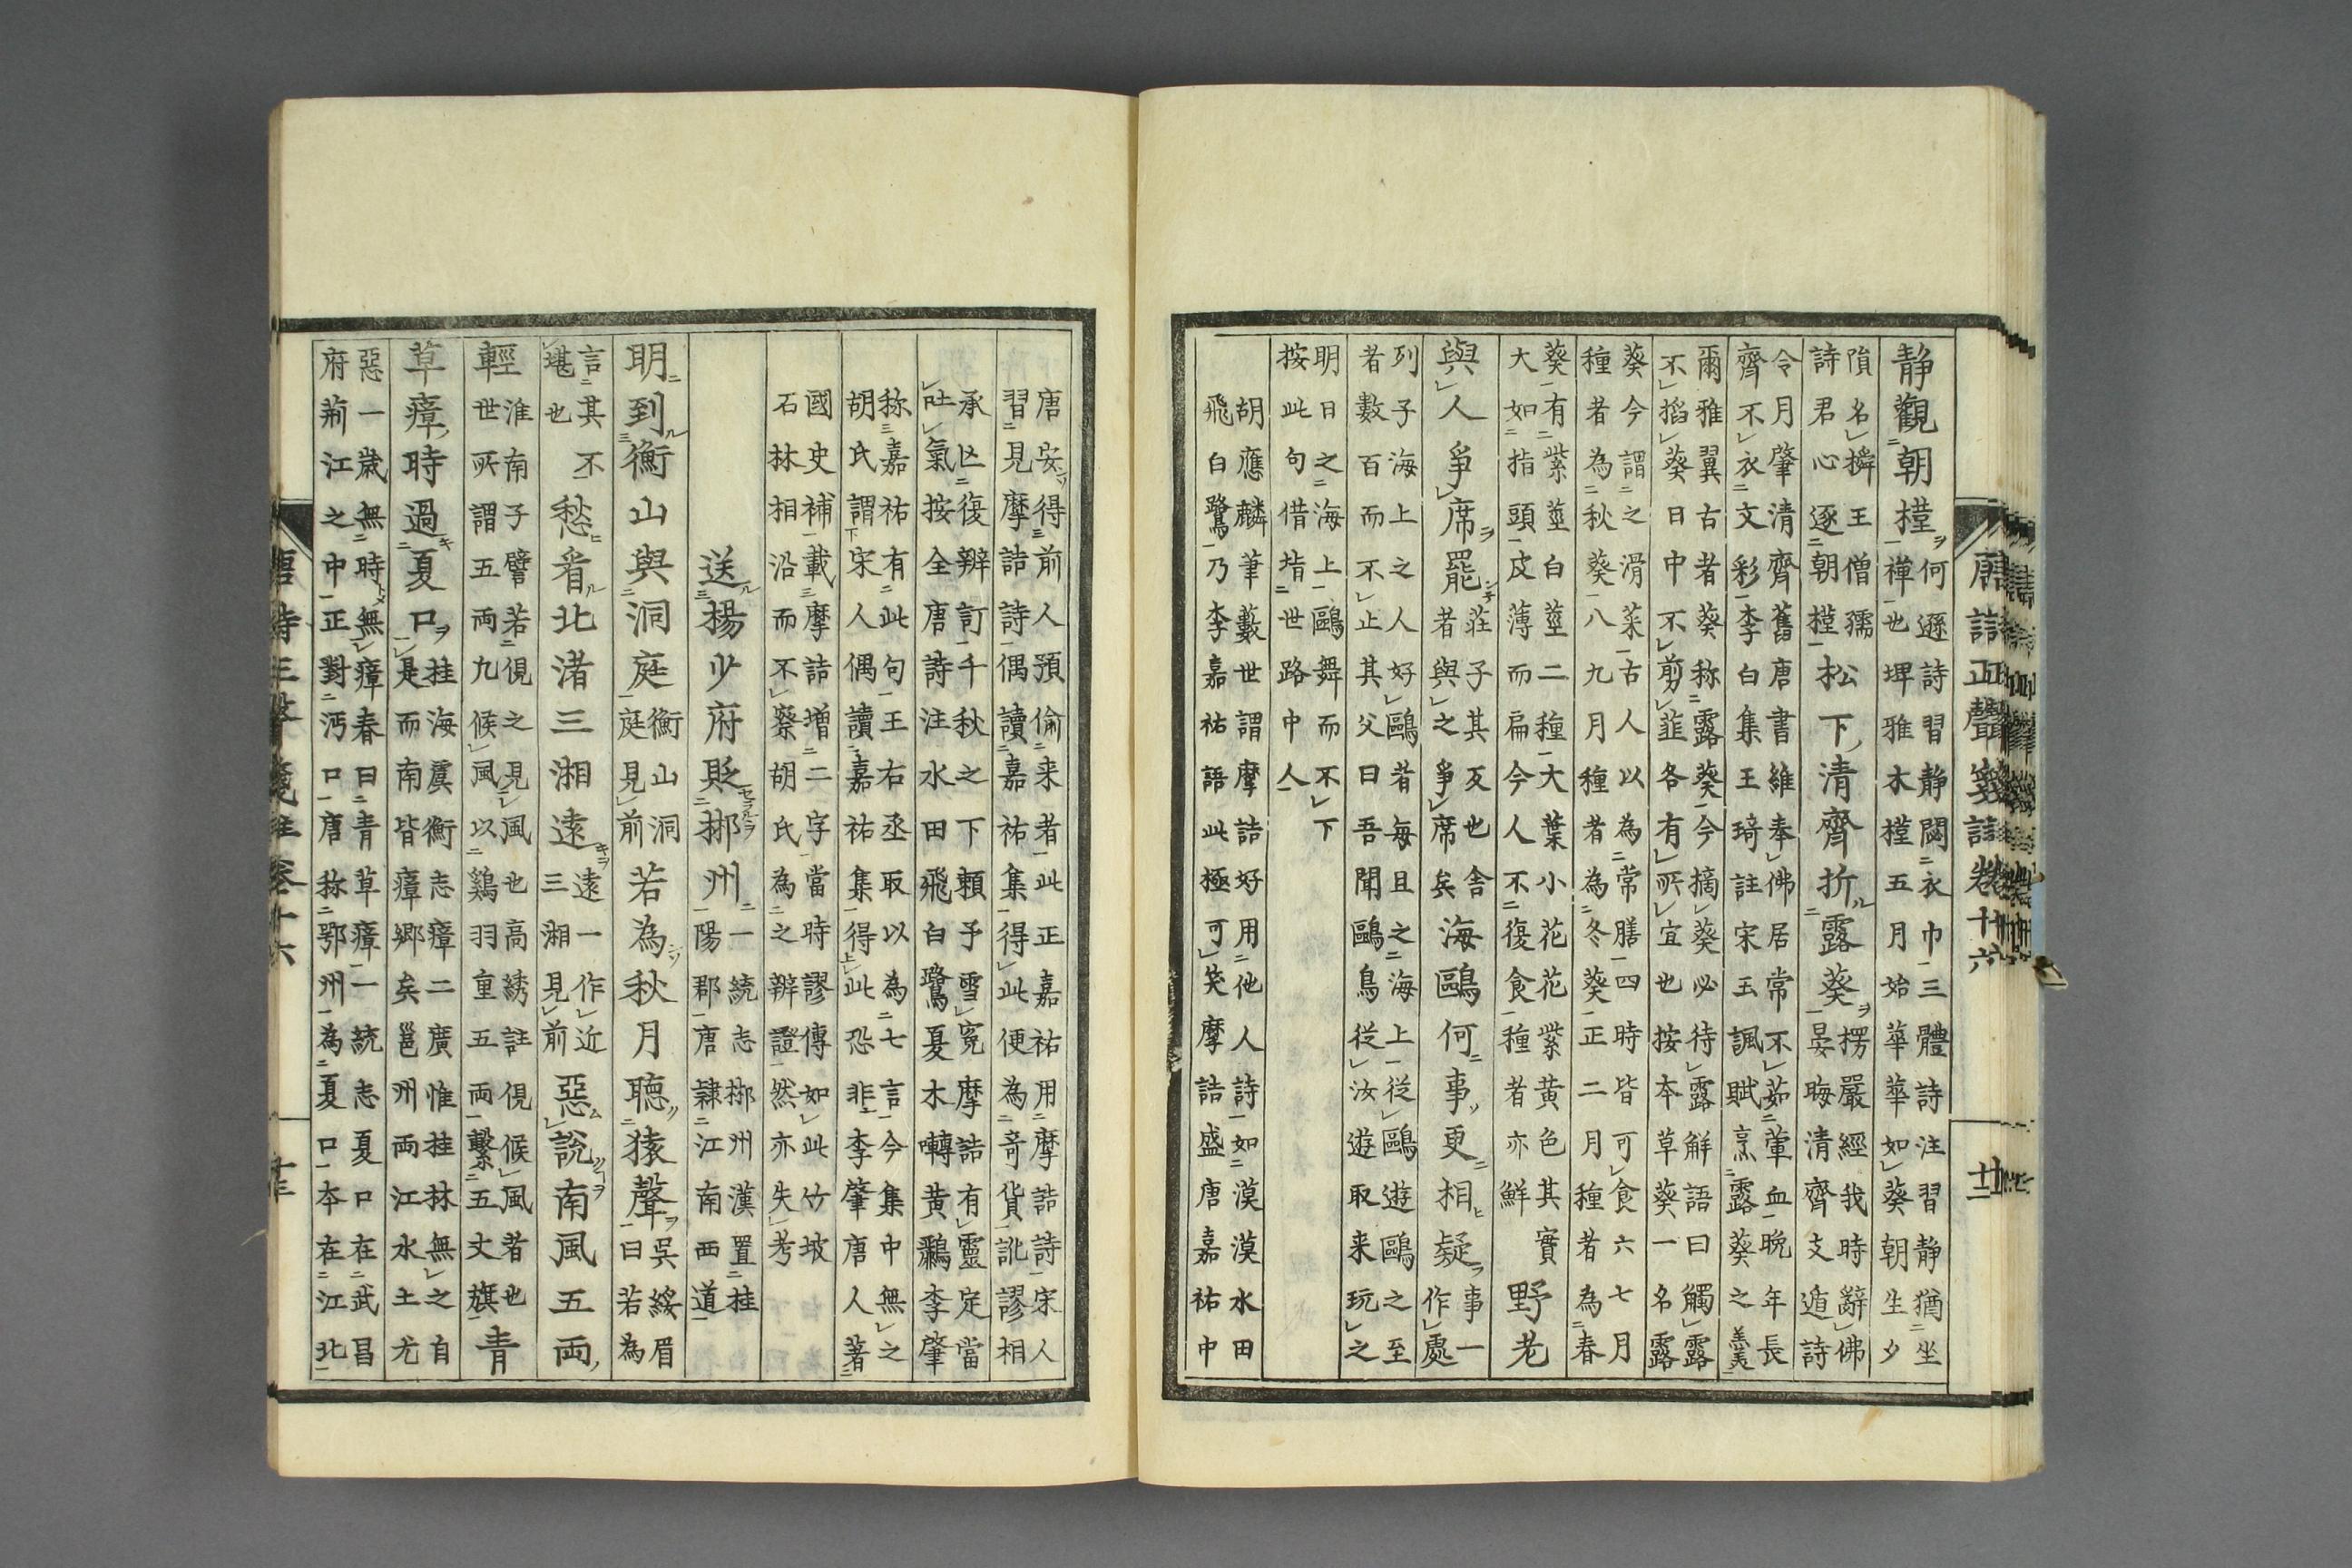 唐詩正聲箋註卷十六
廿二
静觀朝槿
何遜詩習静閟衣巾三體詩注習静猶坐
禅也埤雅木槿五月始華華如葵朝生夕
隕名蕣王僧孺
詩君心逐朝槿
松下清齊折露葵
楞嚴經我時辭佛
晏晦清齊支遁詩
令月肇清齊舊唐書維奉佛居常不茹葷血晩年長
齊不衣文彩李白集王琦註宋玉諷賦烹露葵之羮
爾雅翼古者葵称露葵今摘葵必待露解語曰觸露
不搯葵日中不剪韮各有所宜也按本草葵一名露
葵今謂之滑菜古人以為常膳四時皆可食六七月
種者為秋葵八九月種者為冬葵正二月種者為春
葵有紫莖白莖二種大葉小花花紫黄色其實
大如指頭皮薄而扁今人不復食種者亦鮮
野老
與人爭席罷
莊子其反也舎
者與之爭席矣
海鷗何事更相疑
事一
作處
列子海上之人好鷗者毎旦之海上從鷗遊鷗之至
者數百而不止其父曰吾聞鷗鳥從汝遊取来玩之
明日之海上鷗舞而不下
按此句借措世路中人
胡應麟筆叢世謂摩詰好用他人詩如漠漠水田
飛白鷺乃李嘉祐語此極可笑摩詰盛唐嘉祐中
唐安得前人預偷来者此正嘉祐用摩詰詩宋人
習見摩詰詩偶讀嘉祐集得此便為竒貨訛謬相
承亾復辨訂千秋之下頼予雪寃摩詰有靈定當
吐氣按全唐詩注水田飛白鷺夏木囀黄鸝李肇
称嘉祐有此句王右丞取以為七言今集中無之
胡氏謂宋人偶讀嘉祐集得此恐非李肇唐人著
國史補載摩詰増二字當時謬傳如此竹坡
石林相沿而不察胡氏為之辨證然亦失考
送楊少府貶郴州
一統志郴州漢置桂
陽郡唐隸江南西道
明到衡山與洞庭
衡山洞
庭見前
若為秋月聽猿聲
呉綏眉
曰若為
言其不
堪也
愁看北渚三湘遠
遠一作近
三湘見前
惡說南風五両
輕
淮南子譬若俔之見風也高誘註俔候風者也
世所謂五両九候風以鷄羽重五両繫五丈旗
青
草瘴時過夏口
桂海虞衡志瘴二廣惟桂林無之自
是而南皆瘴郷矣邕州両江水土尤
惡一歳無時無瘴春曰青草瘴一統志夏口在武昌
府荊江之中正對沔口唐称鄂州為夏口本在江北
唐詩正聲箋註卷十六